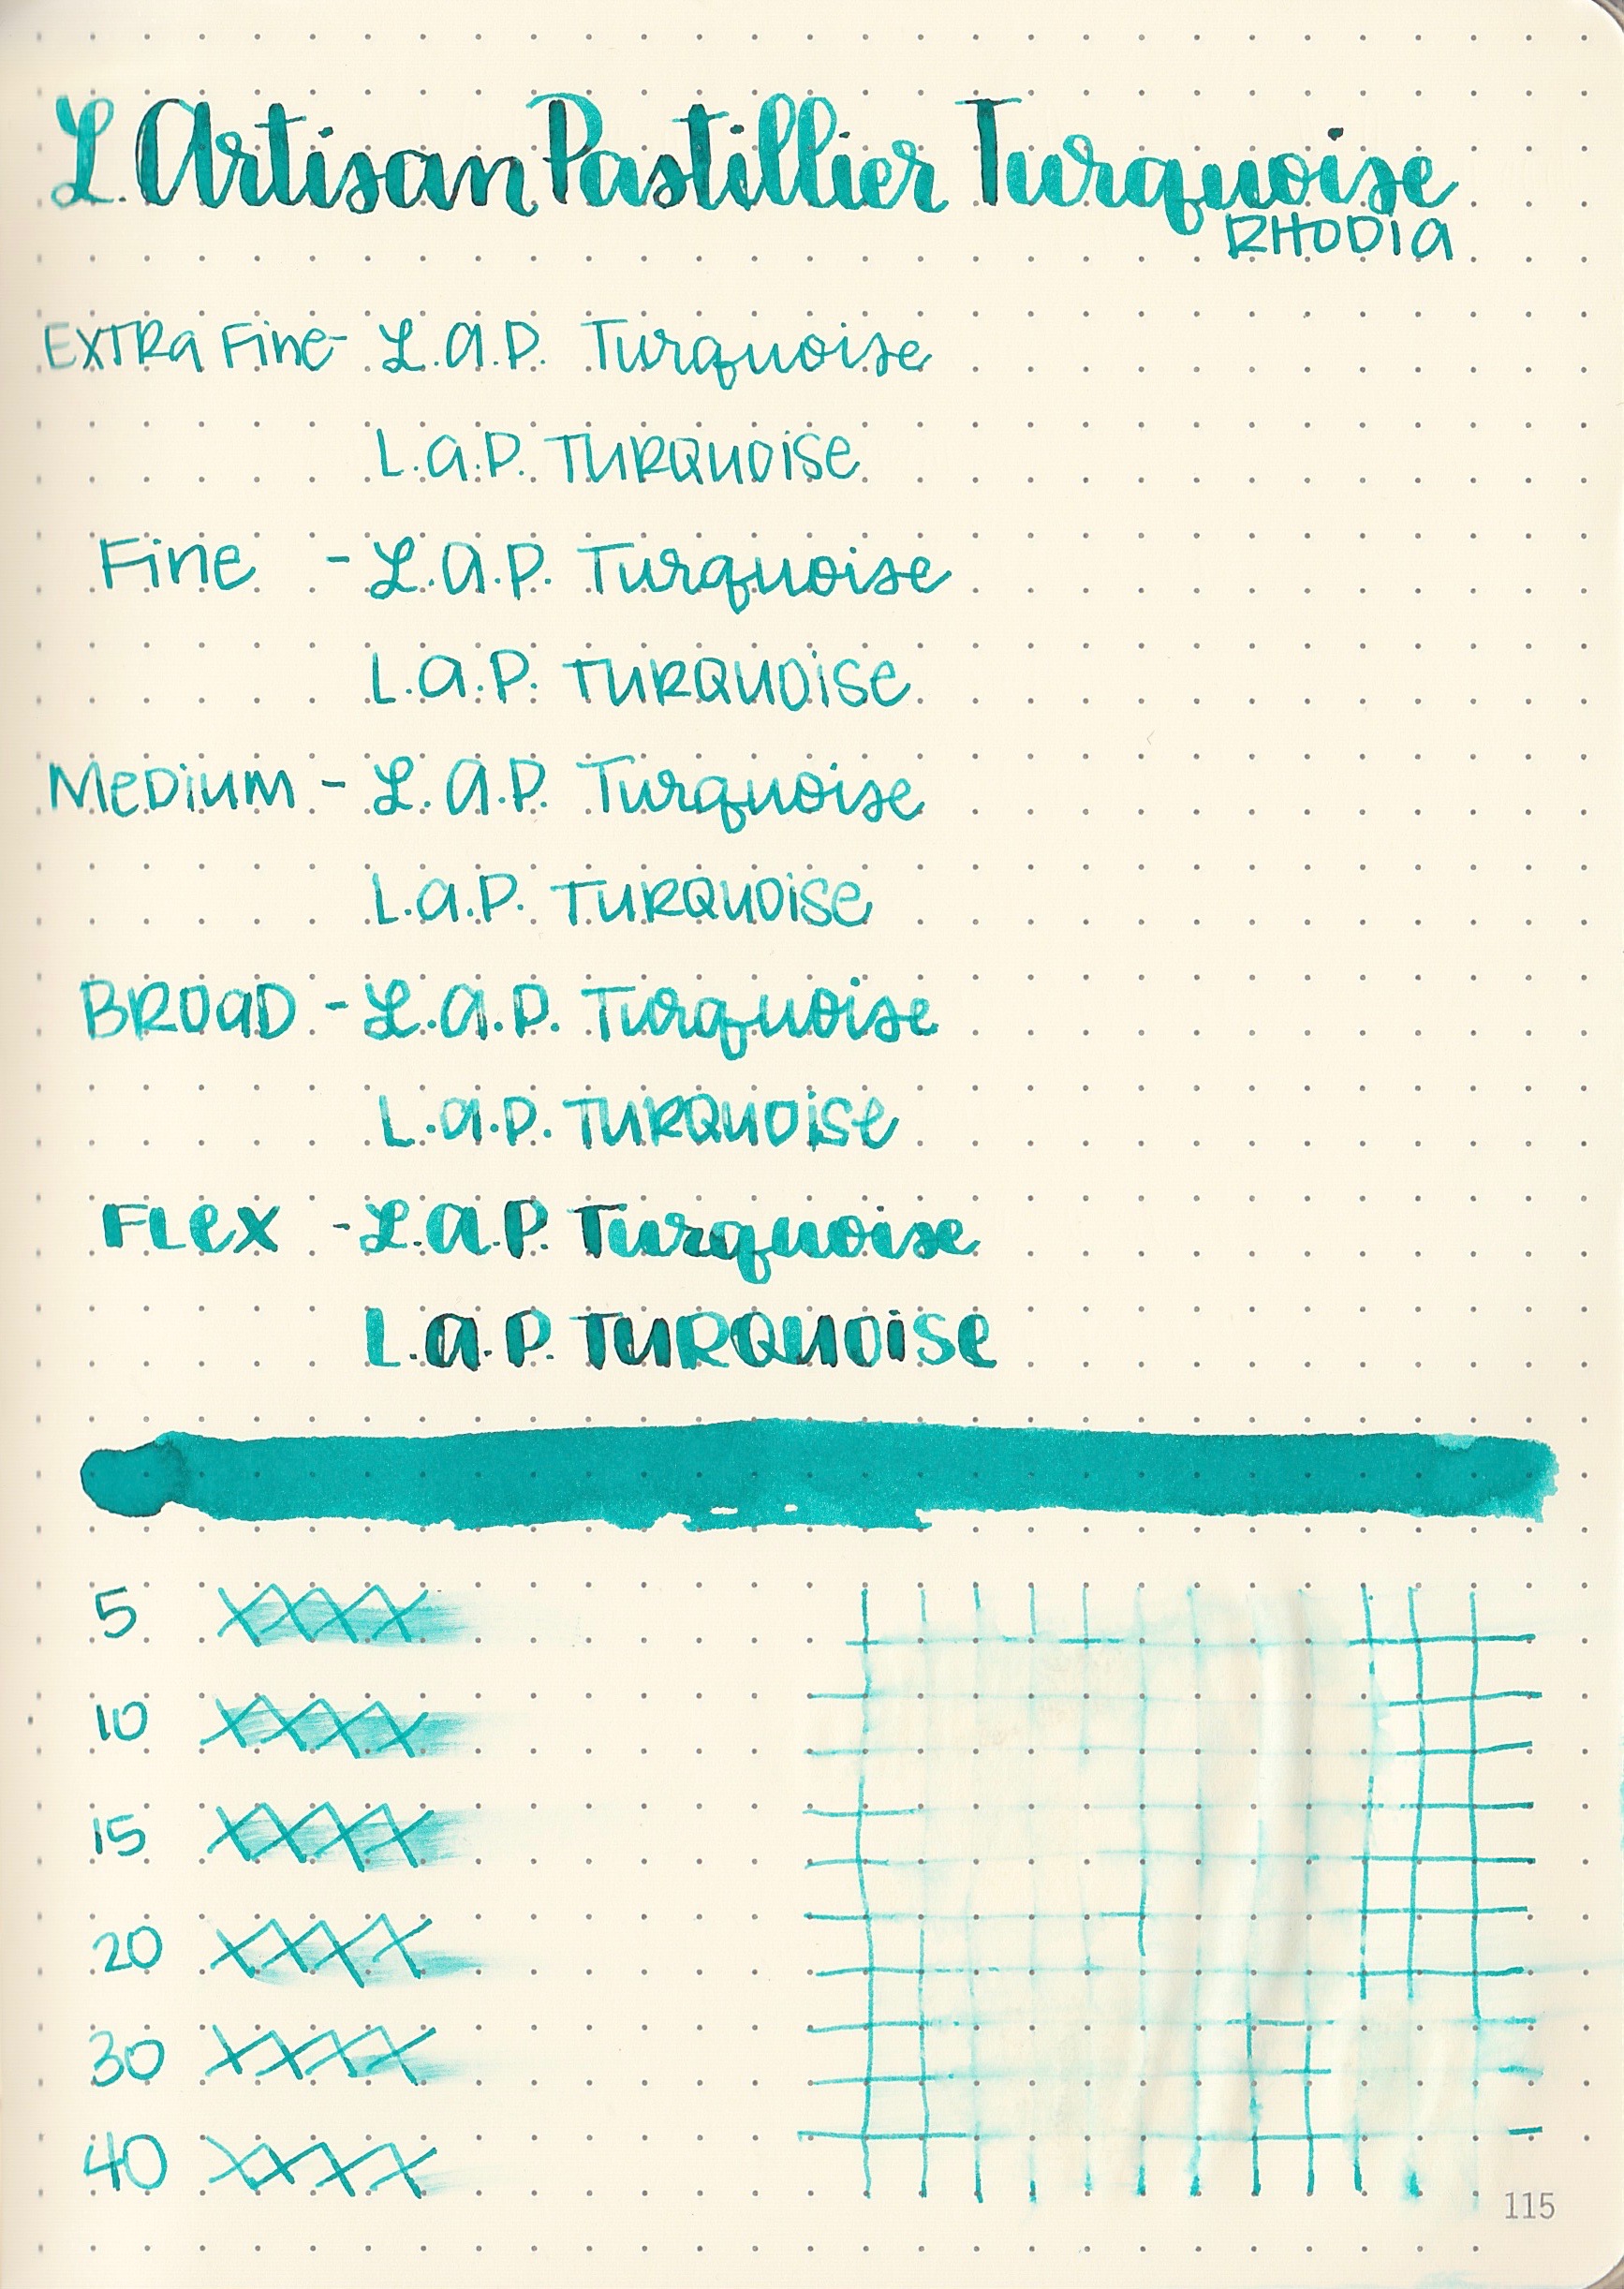 L Artisan Pastillier Turquoise
RHODIA
EXTRA FINE- L.A.P. Turquoise
L.A.P. TURQUOISE
FINE - L.A.P. Turquoise
L.A.P. TURQUOISE
MEDIUM - L.A.P. Turquoise
L.A.P. TURQUOISE
BROAD - L.A.P. Turquoise
L.A.P. TURQUOISE
FLEX - L.A.P. Turquoise
L.A.P. TURQUOISE
5
10
15
20
30
40
115